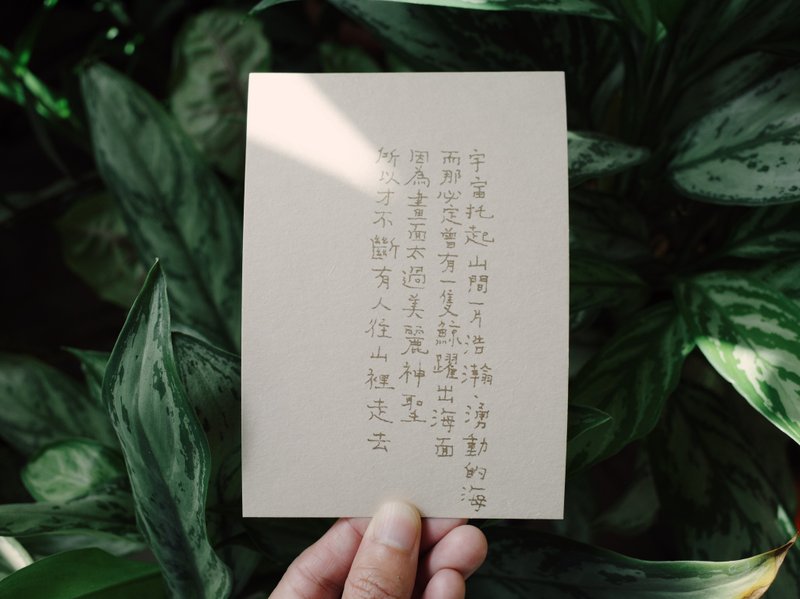 宇宙托起山間一片浩瀚、湧動的海
而那必定曾有一隻鯨躍出海面
因為畫面太過美麗神聖
所以才不斷有人往山裡走去